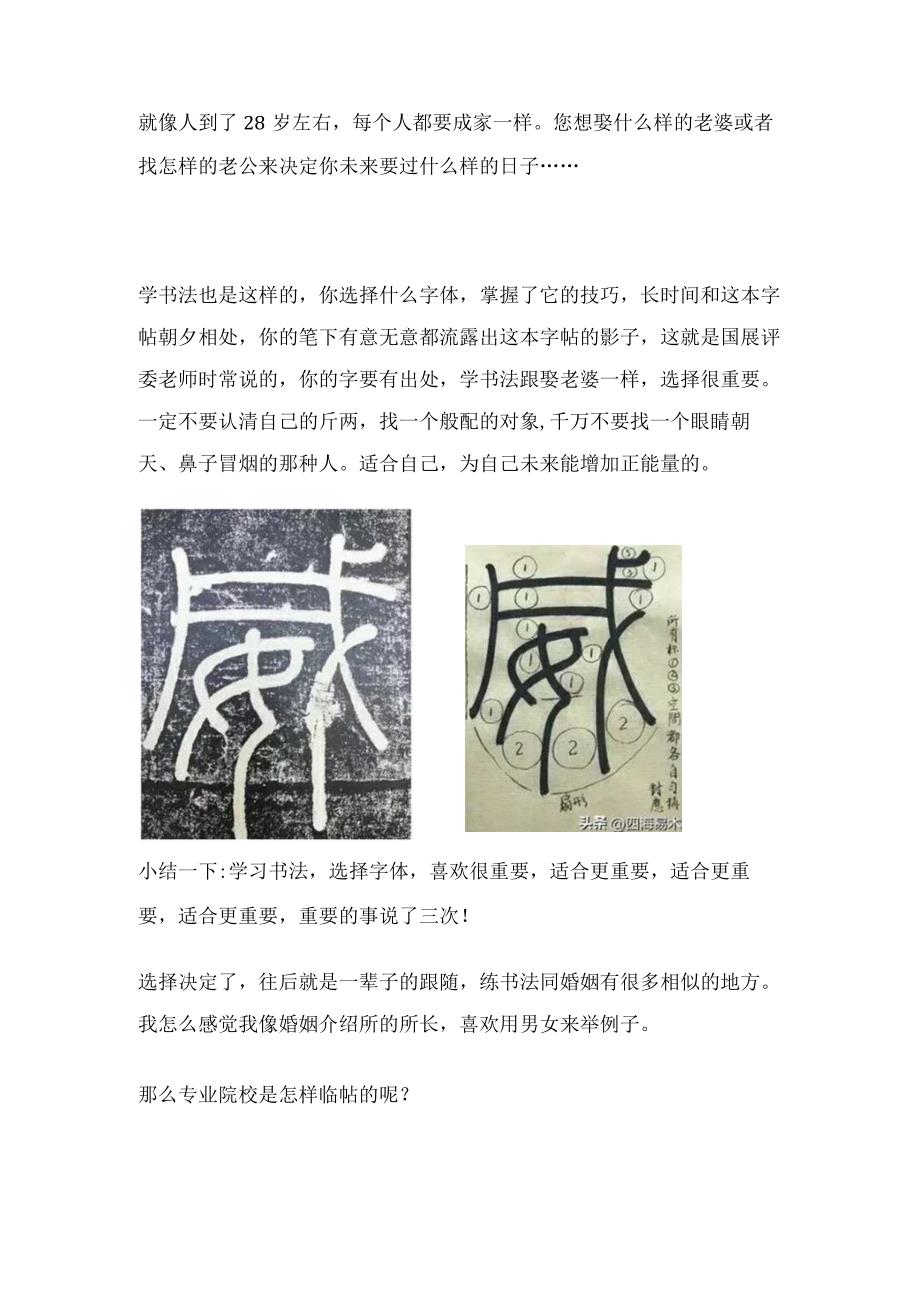 就像人到了 28 岁左右，每个人都要成家一样。您想娶什么样的老婆或者
找怎样的老公来决定你未来要过什么样的日子……
学书法也是这样的，你选择什么字体，掌握了它的技巧，长时间和这本字
帖朝夕相处，你的笔下有意无意都流露出这本字帖的影子，这就是国展评
委老师时常说的，你的字要有出处，学书法跟娶老婆一样，选择很重要。
一定不要认清自己的斤两，找一个般配的对象,千万不要找一个眼睛朝
天、鼻子冒烟的那种人。适合自己，为自己未来能增加正能量的。
威
威
③
③
①
①
①
①
①
①
①
①
①
①
2
2
2
扇形
所有标①②③空间都各自习惯
对应
头条 @四海易木
小结一下:学习书法，选择字体，喜欢很重要，适合更重要，适合更重
要，适合更重要，重要的事说了三次！
选择决定了，往后就是一辈子的跟随，练书法同婚姻有很多相似的地方。
我怎么感觉我像婚姻介绍所的所长，喜欢用男女来举例子。
那么专业院校是怎样临帖的呢？